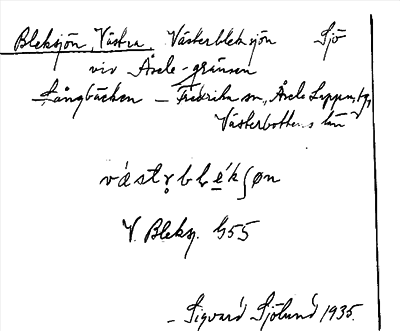 Bleksjön, Västra, Västerbleksjön Sjö
vid Åsele-gränsen
Långbäcken — Fredrika sn., Åsele Lappm.,
Västerbottens län
V. Bleksj. 455
- Sigvard Sjölund 1935.